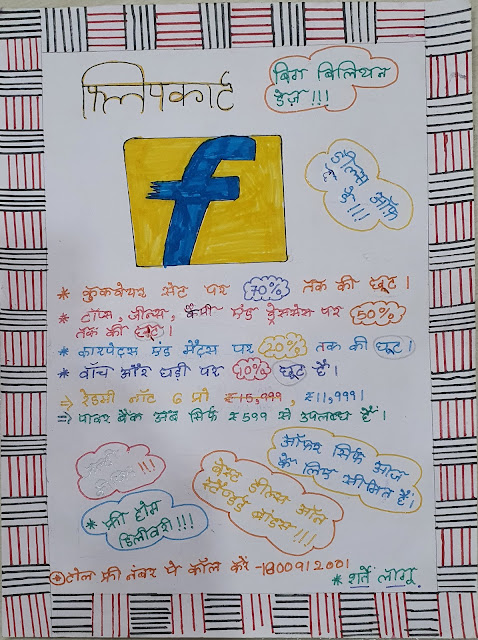 फ्लिपकार्ट
बिग बिलियन
डेज़ !!!
f
डील्स ऑफ़
डे !!!
* क्रॉकवेयर सेट पर 70% तक की छूट।
* टॉप्स, जीन्स, कैपी एंड ड्रेसेस पर 50%
तक की छूट।
* कारपेट्स एंड मैट्स पर 20% तक की छूट।
* वॉच और घड़ी पर 40% छूट हैं।
⇒ रेडमी नॉट 6 प्रो ₹15,999, ₹11,999।
⇒ पावर बैंक अब सिर्फ ₹599 से उपलब्ध हैं।
!!!
* फ्री होम
डिलीवरी!!!
बेस्ट डील्स ऑन
स्टैण्डर्ड ब्रांड्स!!!
ऑफर सिर्फ आज
के लिए सीमित हैं।
* टोल फ्री नंबर पे कॉल करें -1800912001
* शर्तें लागू.